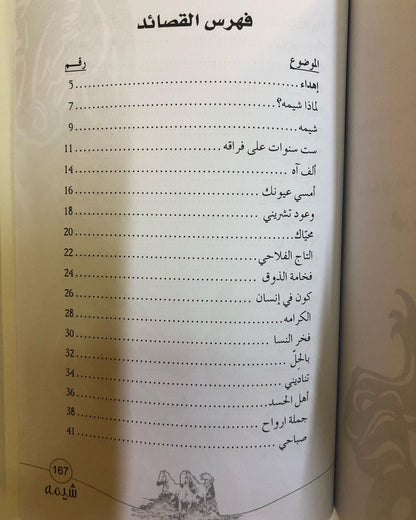 فهرس القصائد
الموضوع رقم
إهداء 5
لماذا شيمه؟ 7
شيمه 9
ست سنوات على فراقه 11
ألف آه 14
أمسي عيونك 16
وعود تشريني 18
محيّاك 20
التاج الفلاحي 22
فخامة الذوق 24
كون في إنسان 26
الكرامه 28
فخر النسا 30
بالحِلّ 32
تناديني 34
أهل الحسد 36
جملة ارواح 38
صباحي 41
167
شيمه